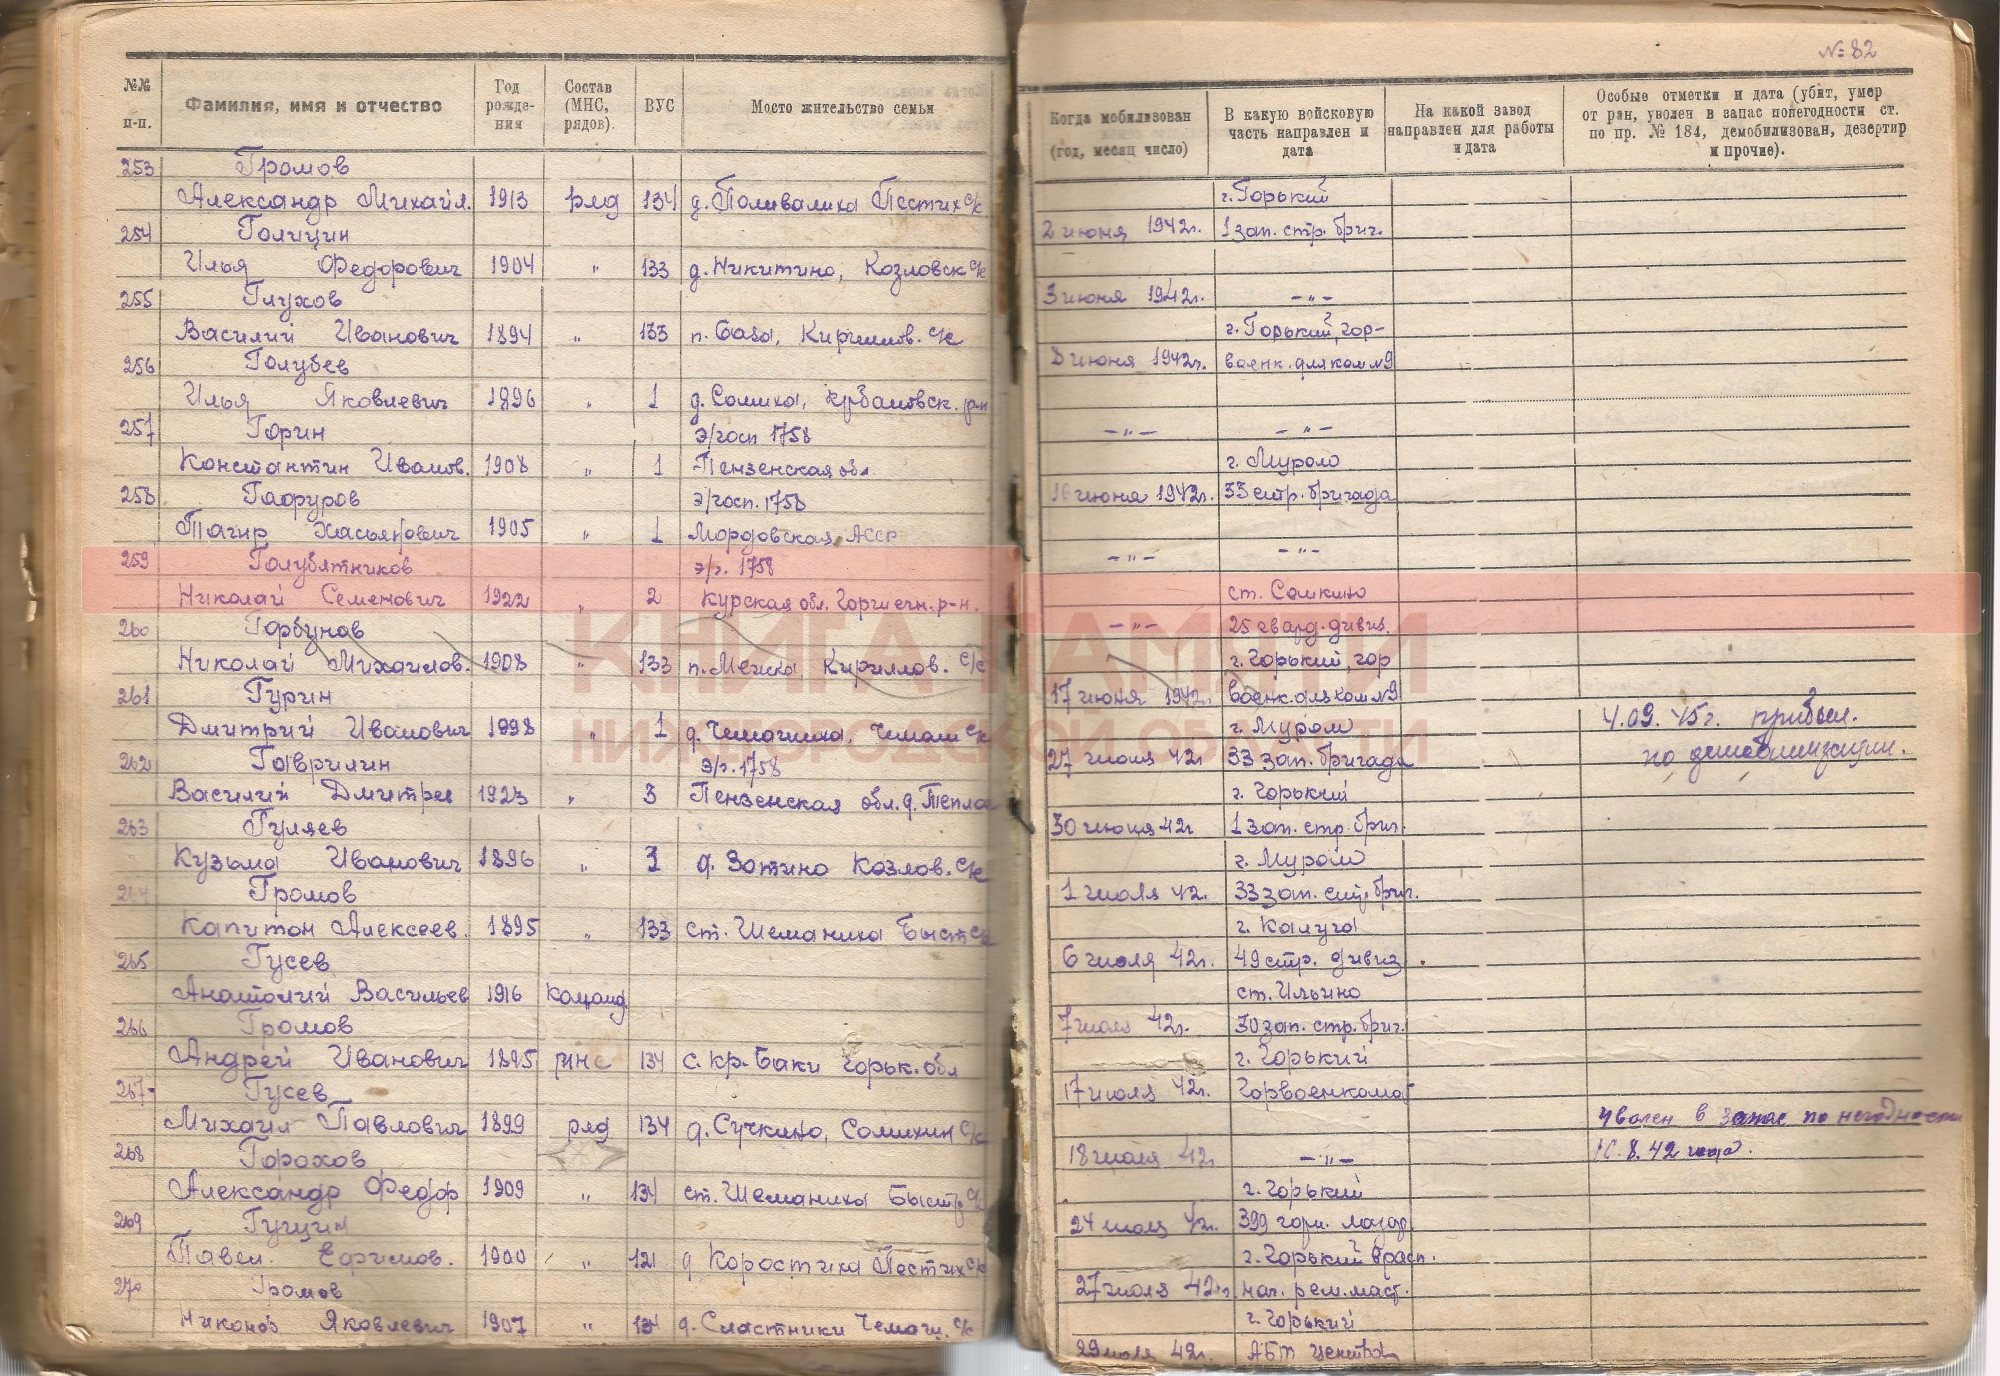 № 82
№№ п-п.
Фамилия, имя и отчество
Год рожде- ния
Состав (МНС, рядов).
ВУС
Место жительство семьи
Когда мобилизован (год, месяц число)
В какую войсковую часть направлен и дата
На какой завод направлен для работы и дата
Особые отметки и дата (убит, умер от ран, уволен в запас по негодности ст. по пр. № 184, демобилизован, дезертир и прочие).
253 Громов
Александр Михайл. 1913 ряд 134 д. Поливалиха Пестих с/к
254 Голицин
Илья Федорович 1904 " 133 д. Никитино, Козловск с/к
255 Глухов
Василий Иванович 1894 " 133 п. База, Кириллов. с/к
256 Голубев
Илья Яковлевич 1896 " 1
257 Горин э/госп 1758
Константин Иванов. 1908 " 1 Пензенская обл
258 Гафуров э/госп. 1758
Тагир Хасьянович 1905 " 1 Мордовская АССР
259 Голубятников э/г. 1758
Николай Семенович 1922 " 2 Курская обл. Горшечн. р-н.
260 Горбунов
Николай Михайлов. 1908 " 133 Кириллов. с/с
261 Гурин
Дмитрий Иванович 1898 " 1
262 Гаврилин э/г. 1758
Василий Дмитрие 1923 " 3 Пензенская обл. д.
263 Гуляев
Кузьма Иванович 1896 " д. Зотино Козлов. с/к
264 Громов
Капитон Алексеев. 1895 " 133 ст. Шеманиха Быст
265 Гусев
Анатолий Васильев 1916 команд
266 Громов
Андрей Иванович 1895 мнс 134 с. Кр. Баки Горьк. обл
267 Гусев
Михаил Павлович 1899 ряд 134 д. Сучкино, Сомихин с/к
268 Горохов
Александр Федор 1909 " 134 ст. Шеманиха Быстр
269 Гущин
Павел Ефимов. 1900 " 121 д Коростиха Пестих с/к
270 Громов
Яковлевич 1907 " 134 д. Сластники с/к
г. Горький
2 июня 1942г. 1 зап. стр. бриг.
3 июня 1942г. — " —
г. Горький, гор-
июня 1942г. военк. для ком №9
— " — — " —
г. Муром
16 июня 1942г. 33 стр. бригада
— " — — " —
ст. Сомкино
— " — 25 гвард. дивиз.
г. Горький, гор
17 июня 1942г военк. для ком №9
г. Муром 4.09.45г. прибыл.
27 июня 42г 33 зап. бригада по демобилизации.
г. Горький
30 июня 42г 1 зап. стр. бриг.
г. Муром
1 июля 42. 33 зап. стр. бриг.
г. Калуга
6 июля 42г. 49 стр. дивиз.
ст. Ильино
7 июля 42г. 30 зап. стр. бриг.
г. Горький
17 июля 42г. Горвоенкомат
уволен в запас по негодности
18 июля 42 — " — 8.42 года.
г. Горький
24 июля 42г. 399
г. Горький в расп.
27 июля 42г. нач. рем. маст.
г. Горький
29 июля 42г. АБТ центр
КНИГА ПАМЯТИ
НИЖЕГОРОДСКОЙ ОБЛАСТИ